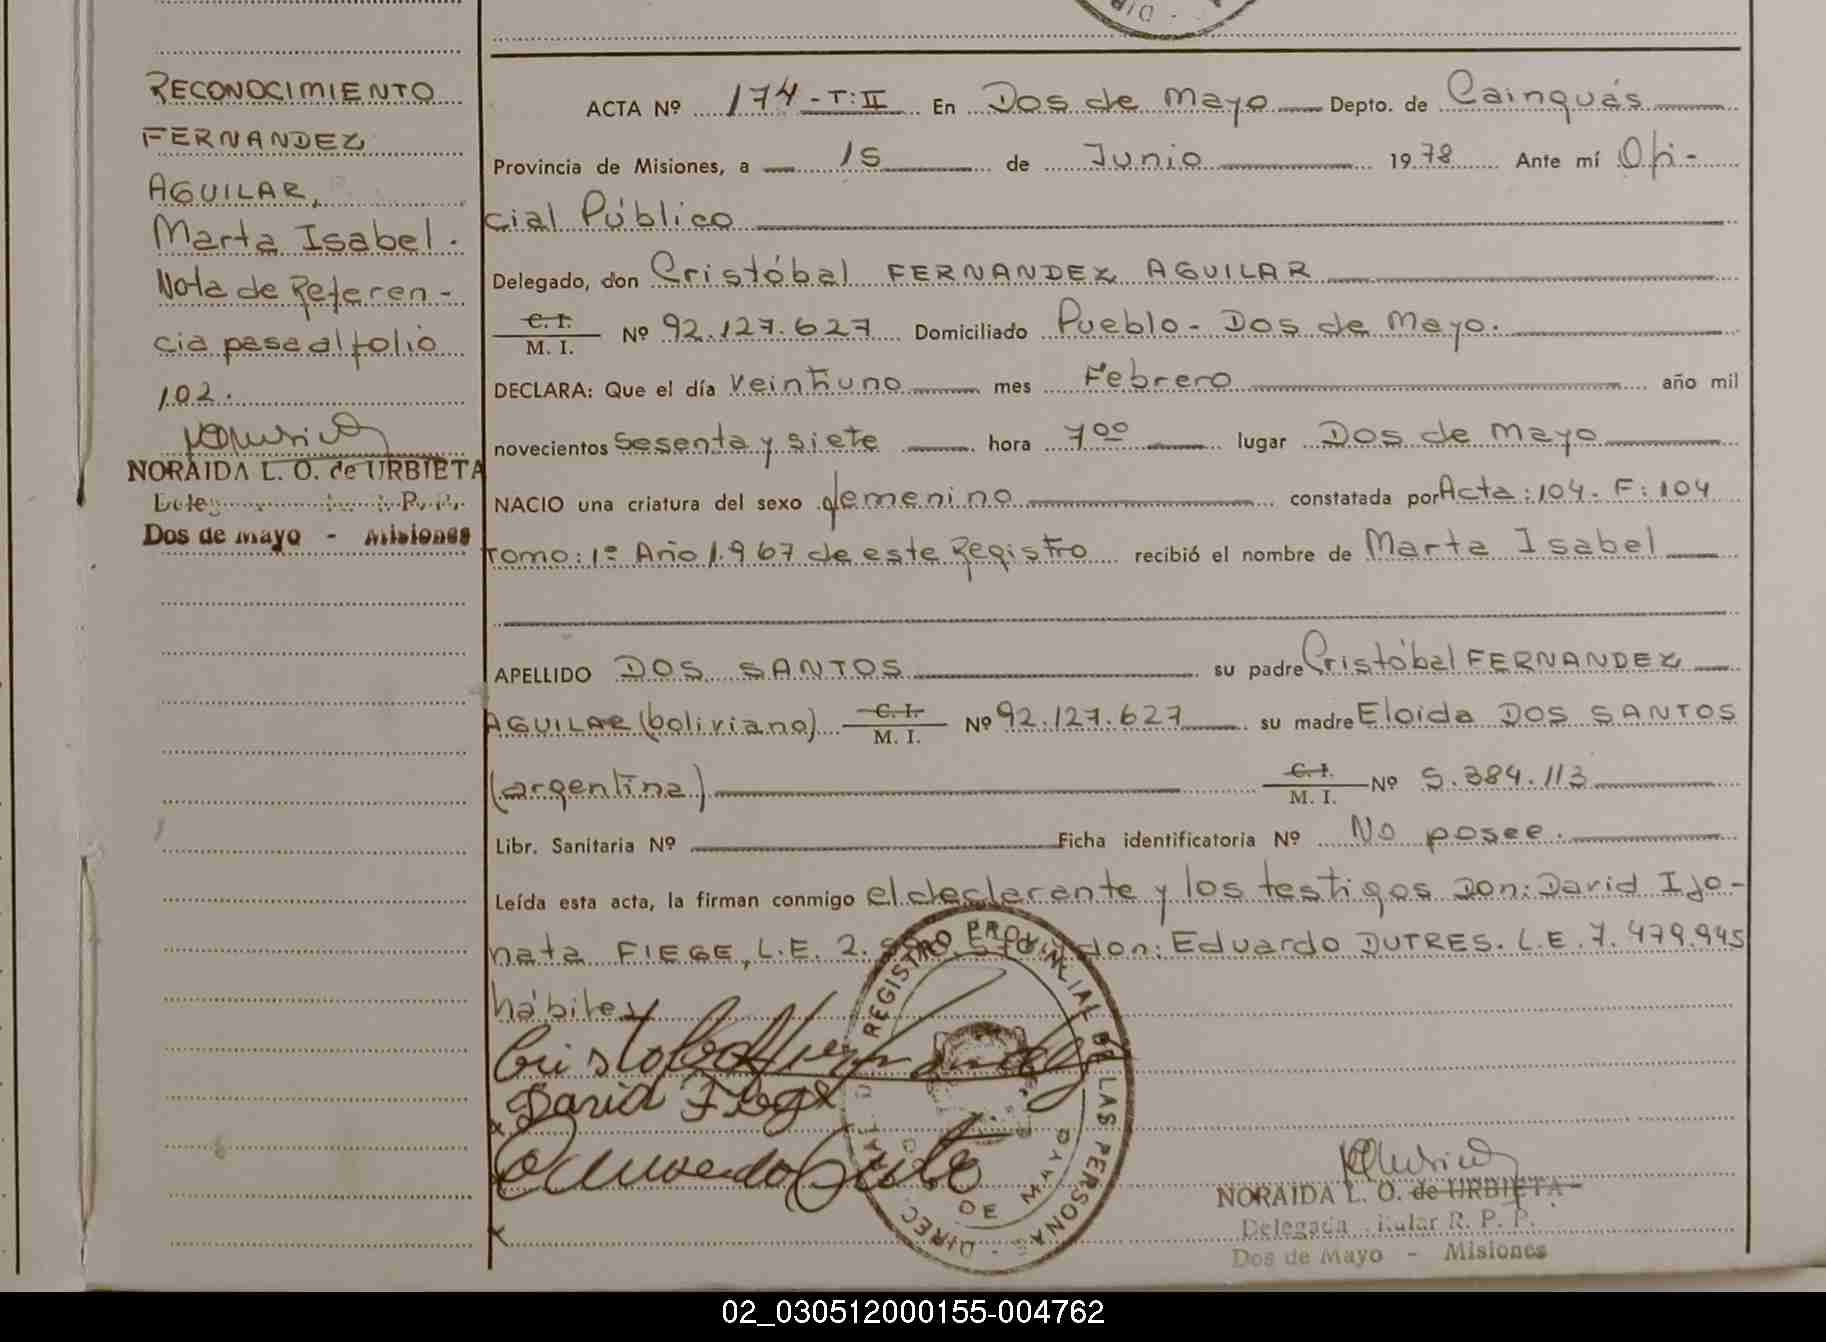 RECONOCIMIENTO
FERNANDEZ
AGUILAR,
Marta Isabel.
Nota de Referen-
cia pasa al folio
102.
NORAIDA L. O. de URBIETA
Dos de Mayo - Misiones
ACTA Nº 174-T:II En Dos de Mayo Depto. de Cainguás
Provincia de Misiones, a 15 de Junio 1978 Ante mí Ofi-
cial Público
Delegado, don Cristóbal FERNANDEZ AGUILAR
C. I. / M. I. Nº 92.127.627 Domiciliado Pueblo - Dos de Mayo.
DECLARA: Que el día veintiuno mes Febrero año mil
novecientos sesenta y siete hora 7ºº lugar Dos de Mayo
NACIO una criatura del sexo femenino constatada por Acta: 104. F: 104
Tomo: 1º Año 1.967 de este Registro recibió el nombre de Marta Isabel
APELLIDO DOS SANTOS su padre Cristóbal FERNANDEZ
AGUILAR (boliviano) C. I. / M. I. Nº 92.127.627 su madre Eloida DOS SANTOS
(argentina) C. I. / M. I. Nº 5.384.113
Libr. Sanitaria Nº Ficha identificatoria Nº No posee.
Leída esta acta, la firman conmigo el declarante y los testigos Don: David Ijo-
nata FIEGE, L.E. 2. don: Eduardo DUTRES. L.E. 7.479.945
hábiles
Cristobal Fernandez
David Fiege
REGISTRO PROVINCIAL DE LAS PERSONAS - DIREC.
DOS DE MAYO
NORAIDA L. O. de URBIETA
Delegada Titular R. P. P.
Dos de Mayo - Misiones
02_030512000155-004762